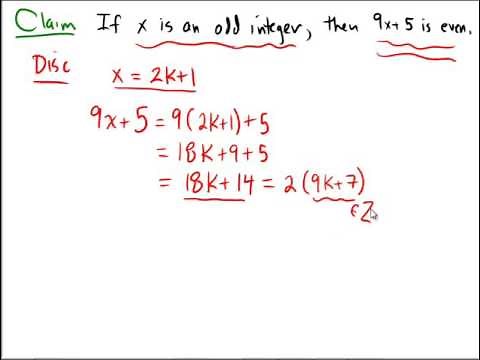 Claim If x is an odd integer, then 9x+5 is even.
Disc x = 2k+1
9x+5 = 9(2k+1)+5
= 18k+9+5
= 18k+14 = 2(9k+7)
∈ℤ